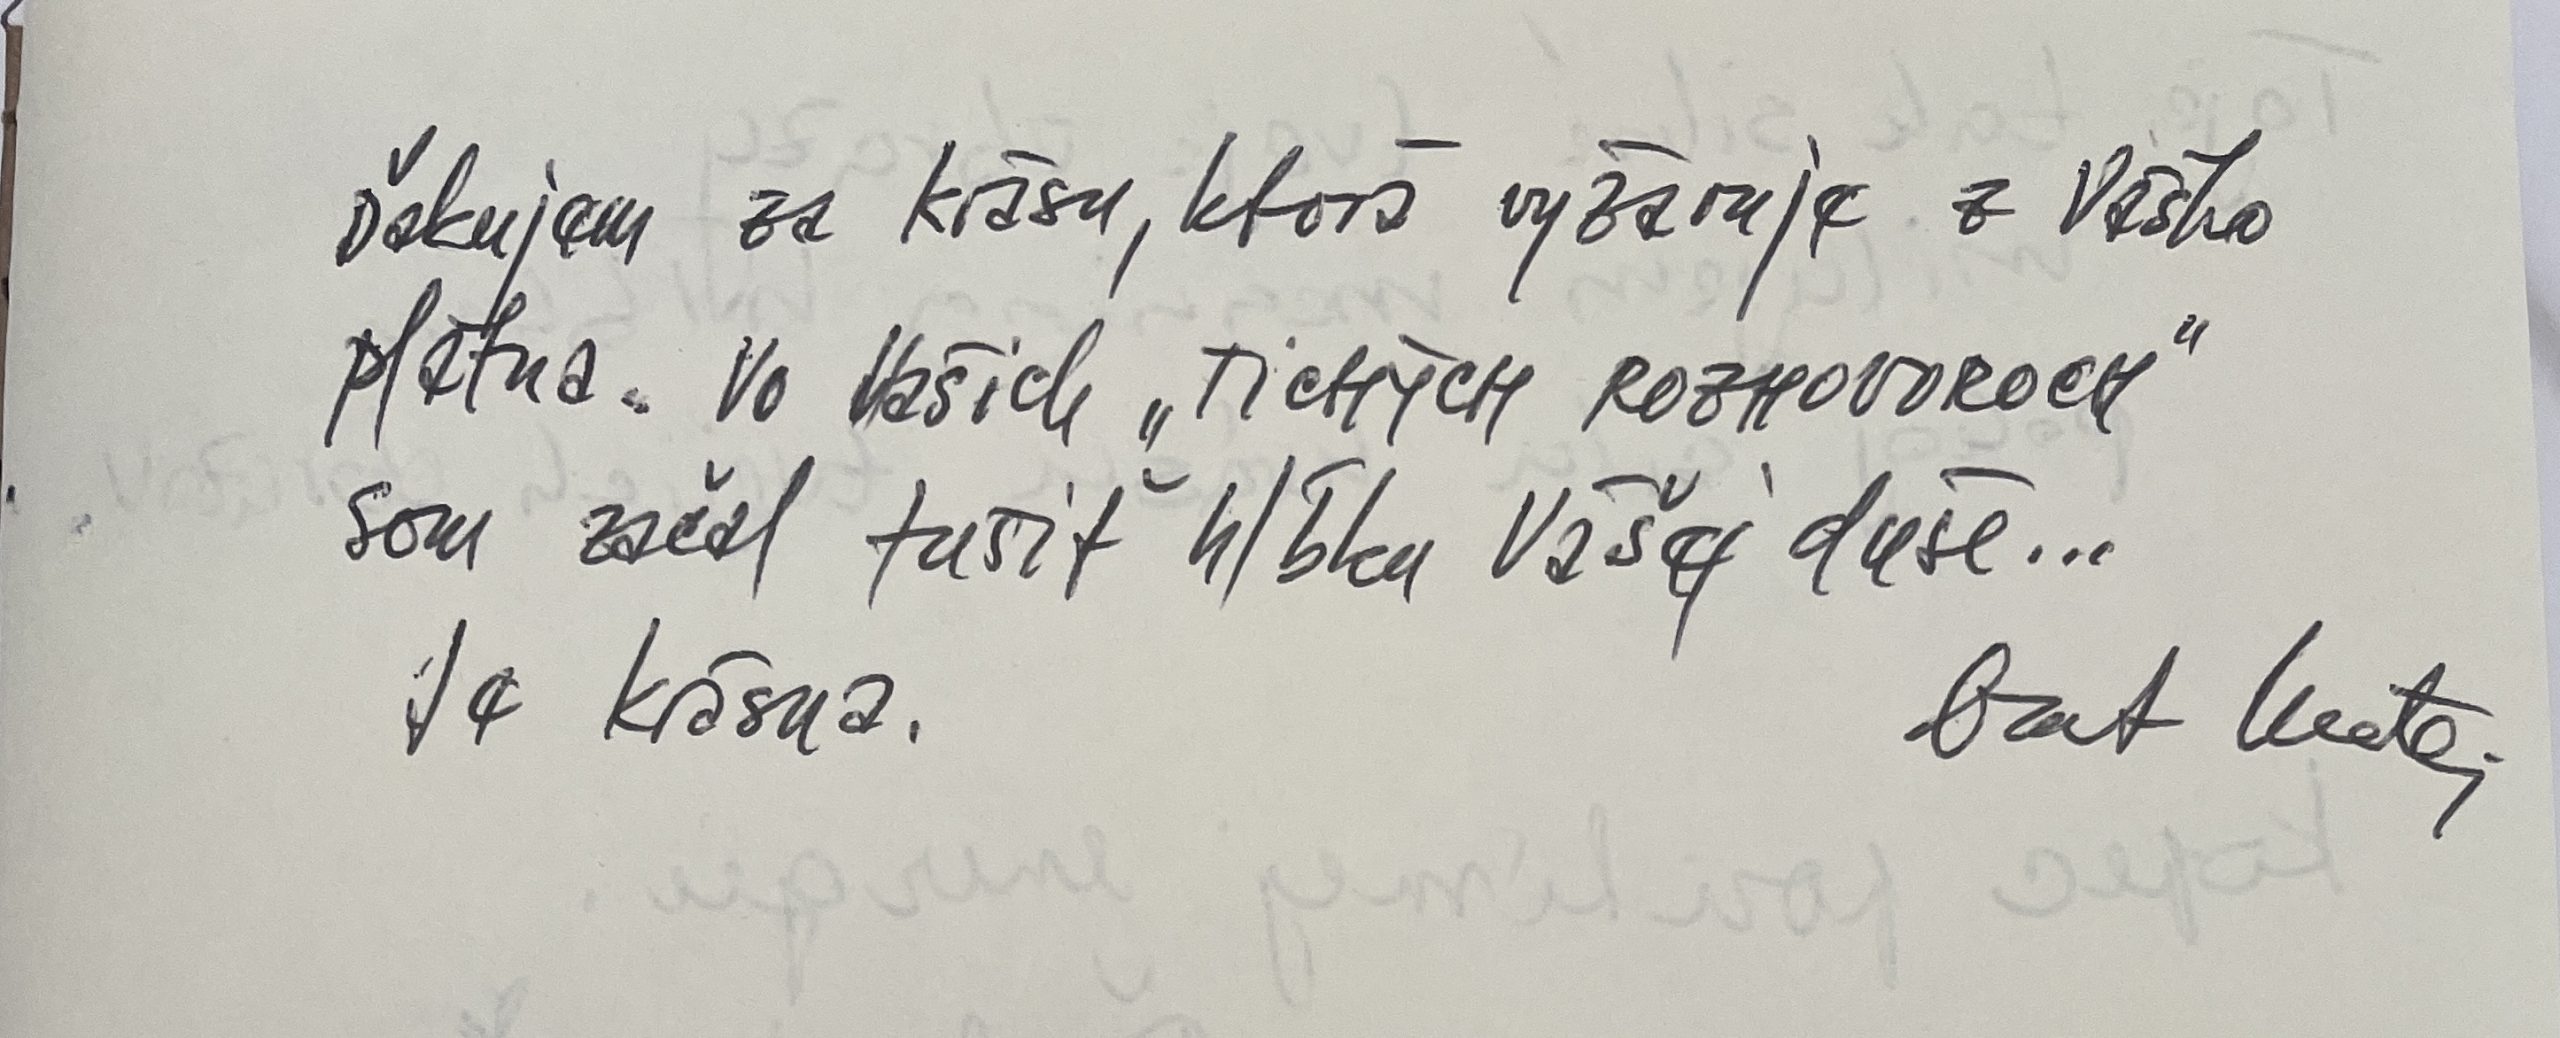 Ďakujem za krásu, ktorá vyžaruje z Vášho
plátna. Vo Vašich „TICHÝCH ROZHOVOROCH“
som začal tušiť hĺbku Vašej duše...
Je krásna.
Brat Matej